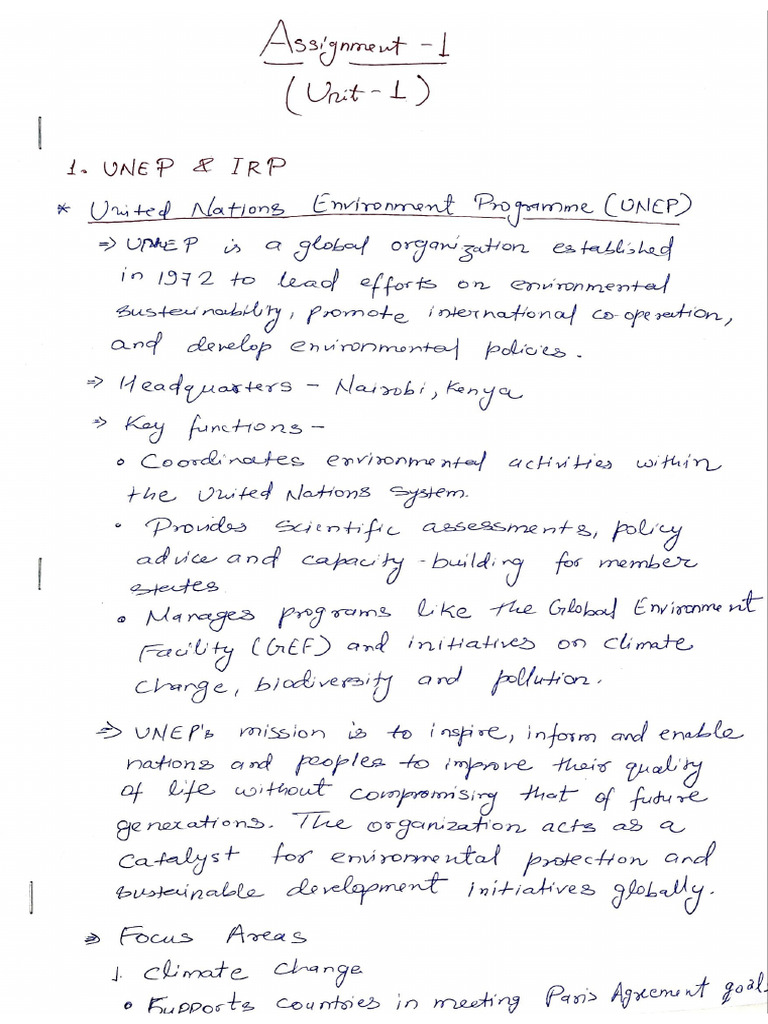 Assignment - 1
(Unit - 1)
1. UNEP & IRP
* United Nations Environment Programme (UNEP)
⇒ UNEP is a global organization established
in 1972 to lead efforts on environmental
sustainability, promote international co-operation,
and develop environmental policies.
⇒ Headquarters - Nairobi, Kenya
⇒ Key functions -
• Coordinates environmental activities within
the United Nations System.
• Provides scientific assessments, policy
advice and capacity-building for member
states.
• Manages programs like the Global Environment
Facility (GEF) and initiatives on climate
change, biodiversity and pollution.
⇒ UNEP's mission is to inspire, inform and enable
nations and peoples to improve their quality
of life without compromising that of future
generations. The organization acts as a
catalyst for environmental protection and
sustainable development initiatives globally.
⇒ Focus Areas
1. Climate Change
• Supports countries in meeting Paris Agreement goals